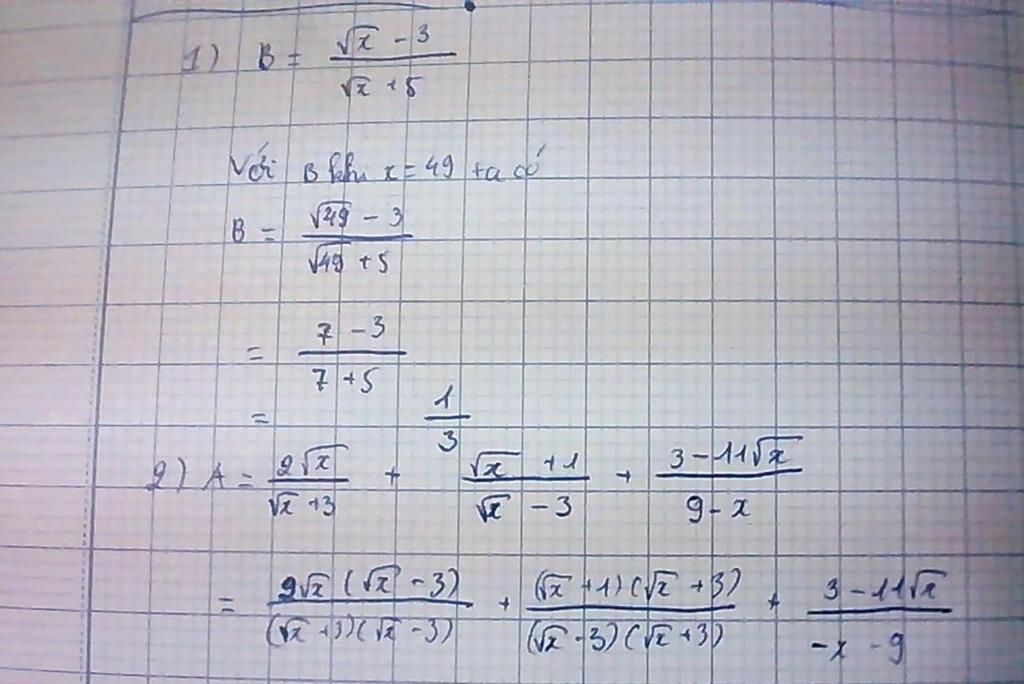 1) B = (√x - 3)/(√x + 5)
Với B khi x = 49 ta có
B = (√49 - 3)/(√49 + 5)
= (7 - 3)/(7 + 5)
= 1/3
2) A = (2√x)/(√x + 3) + (√x + 1)/(√x - 3) + (3 - 11√x)/(9 - x)
= (2√x (√x - 3))/((√x + 3)(√x - 3)) + ((√x + 1)(√x + 3))/((√x - 3)(√x + 3)) + (3 - 11√x)/(-x - 9)